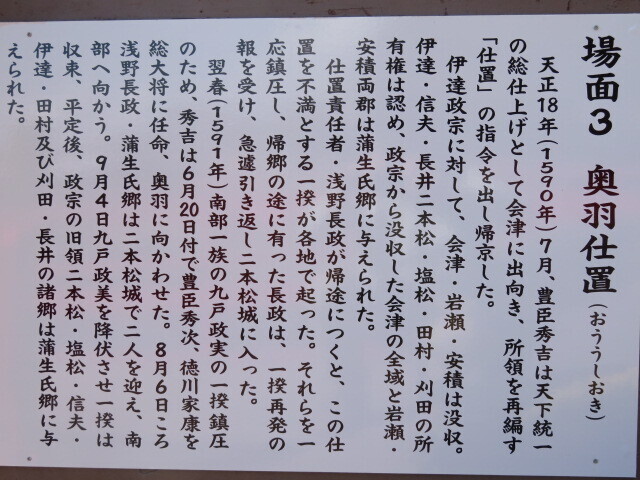 場面3 奥羽仕置(おううしおき)
天正18年(1590年)7月、豊臣秀吉は天下統一
の総仕上げとして会津に出向き、所領を再編す
「仕置」の指令を出し帰京した。
伊達政宗に対して、会津・岩瀬・安積は没収。
伊達・信夫・長井二本松・塩松・田村・刈田の所
有権は認め、政宗から没収した会津の全域と岩瀬・
安積両郡は蒲生氏郷に与えられた。
仕置責任者・浅野長政が帰途につくと、この仕
置を不満とする一揆が各地で起った。それらを一
応鎮圧し、帰郷の途に有った長政は、一揆再発の
報を受け、急遽引き返し二本松城に入った。
翌春(1591年)南部一族の九戸政実の一揆鎮圧
のため、秀吉は6月20日付で豊臣秀次、徳川家康を
総大将に任命、奥羽に向かわせた。8月6日ころ
浅野長政・蒲生氏郷は二本松城で二人を迎え、南
部へ向かう。9月4日九戸政美を降伏させ一揆は
収束、平定後、政宗の旧領二本松・塩松・信夫・
伊達・田村及び刈田・長井の諸郷は蒲生氏郷に与
えられた。